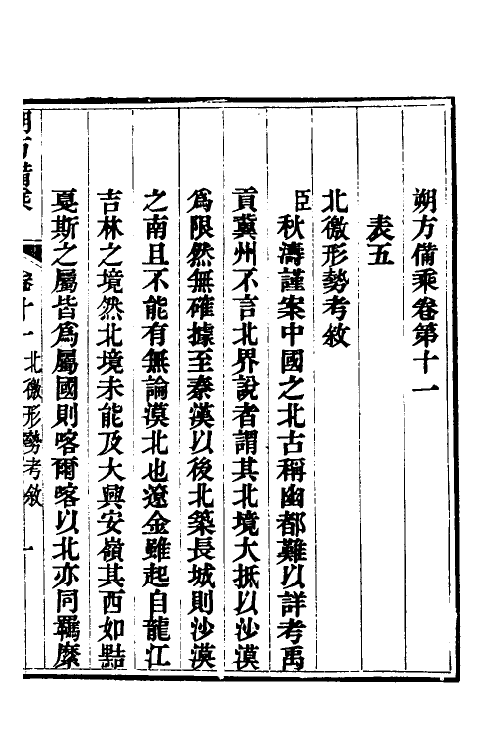 朔方備乘卷第十一
表五
北徼形勢考敘
臣秋濤謹案中國之北古稱幽都難以詳考禹
貢冀州不言北界說者謂其北境大抵以沙漠
爲限然無確據至秦漢以後北築長城則沙漠
之南且不能有無論漠北也遼金雖起自龍江
吉林之境然北境未能及大興安嶺其西如黠
戛斯之屬皆爲屬國則喀爾喀以北亦同羈縻
朔方備乘 卷十一 北徼形勢考敘 一